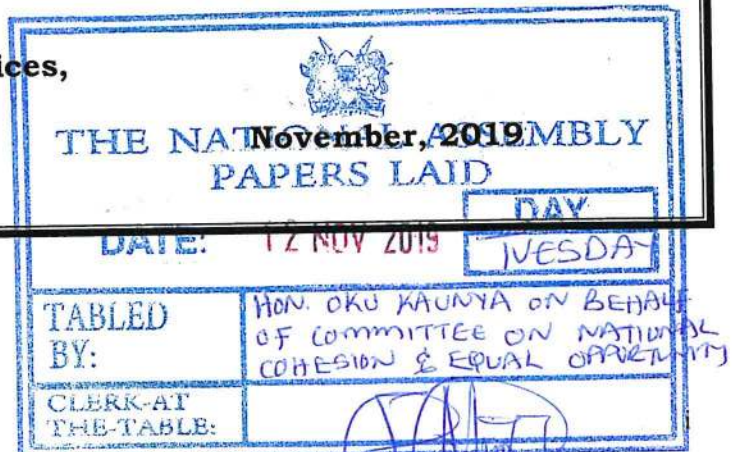 ices,
November, 2019
THE NATIONAL ASSEMBLY
PAPERS LAID
DAY
DATE: 12 NOV 2019
TUESDAY
TABLED BY:
HON. OKU KAUNYA ON BEHALF
OF COMMITTEE ON NATIONAL
COHESION & EQUAL OPPORTUNITY
CLERK-AT
THE-TABLE: